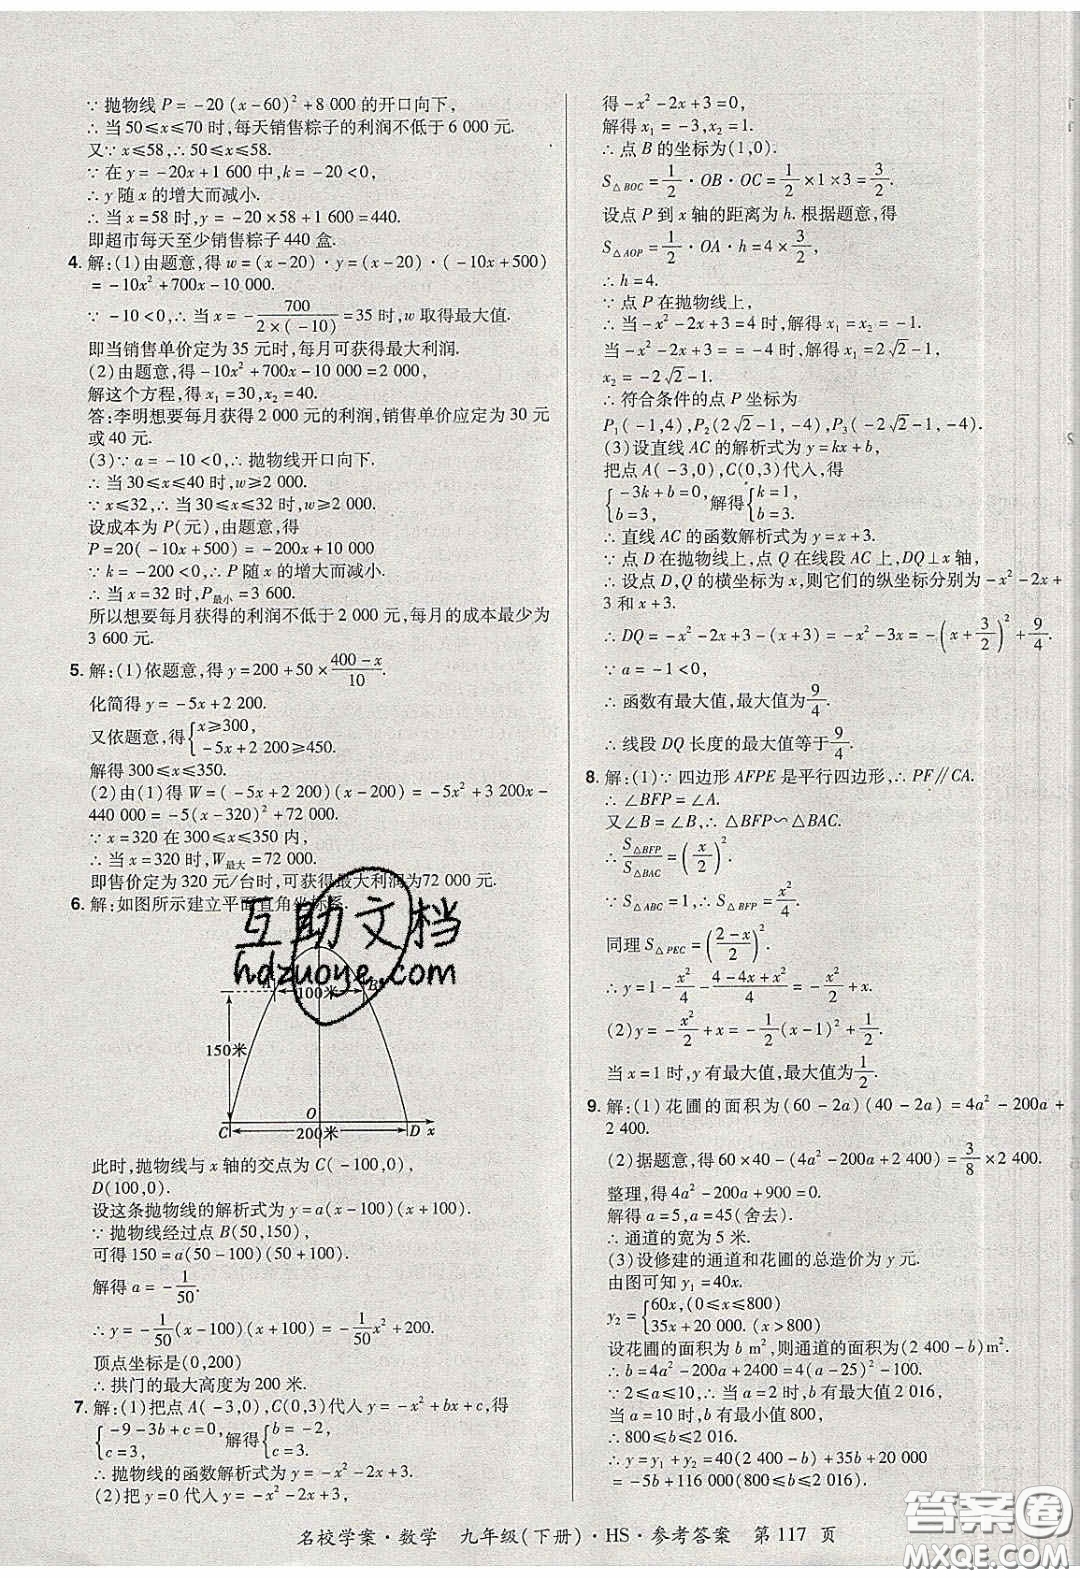 ∵ 抛物线 P = -20(x-60)²+8 000 的开口向下,
∴ 当 50≤x≤70 时,每天销售粽子的利润不低于 6 000 元.
又∵ x≤58,∴ 50≤x≤58.
∵ 在 y = -20x+1 600 中,k = -20<0,
∴ y 随 x 的增大而减小.
∴ 当 x=58 时,y最小 = -20×58+1 600=440.
即超市每天至少销售粽子 440 盒.
4. 解:(1)由题意,得 w=(x-20)·y=(x-20)·(-10x+500)
= -10x²+700x-10 000.
∵ -10<0,∴ 当 x = - 700/(2×(-10)) = 35 时,w 取得最大值.
即当销售单价定为 35 元时,每月可获得最大利润.
(2)由题意,得 -10x²+700x-10 000=2 000,
解这个方程,得 x₁=30,x₂=40.
答:李明想要每月获得 2 000 元的利润,销售单价应定为 30 元
或 40 元.
(3)∵ a = -10<0,∴ 抛物线开口向下.
∴ 当 30≤x≤40 时,w≥2 000.
∵ x≤32,∴ 当 30≤x≤32 时,w≥2 000.
设成本为 P(元),由题意,得
P=20(-10x+500) = -200x+10 000
∵ k = -200<0,∴ P 随 x 的增大而减小.
∴ 当 x=32 时,P最小=3 600.
所以想要每月获得的利润不低于 2 000 元,每月的成本最少为
3 600 元.
5. 解:(1)依题意,得 y=200+50×(400-x)/10.
化简得 y = -5x+2 200.
又依题意,得{x≥300, -5x+2 200≥450.
解得 300≤x≤350.
(2)由(1)得 W=(-5x+2 200)(x-200) = -5x²+3 200x-
440 000 = -5(x-320)²+72 000.
∵ x=320 在 300≤x≤350 内,
∴ 当 x=320 时,W最大=72 000.
即售价定为 320 元/台时,可获得最大利润为72 000 元.
6. 解:如图所示建立平面直角坐标系.
互助文档
hdzuoye.com
A 100米 B
150米
C O D x
200米
此时,抛物线与 x 轴的交点为 C(-100,0),
D(100,0).
设这条抛物线的解析式为 y=a(x-100)(x+100).
∵ 抛物线经过点 B(50,150),
可得 150=a(50-100)(50+100).
解得 a = -1/50.
∴ y = -1/50(x-100)(x+100) = -1/50x²+200.
顶点坐标是(0,200)
∴ 拱门的最大高度为 200 米.
7. 解:(1)把点 A(-3,0),C(0,3)代入 y = -x²+bx+c,得
{-9-3b+c=0, c=3. 解得{b = -2, c=3.
∴ 抛物线的函数解析式为 y = -x²-2x+3.
(2)把 y=0 代入 y = -x²-2x+3,
得 -x²-2x+3=0,
解得 x₁ = -3,x₂=1.
∴ 点 B 的坐标为(1,0).
S△BOC = 1/2·OB·OC = 1/2×1×3 = 3/2.
设点 P 到 x 轴的距离为 h. 根据题意,得
S△AOP = 1/2·OA·h=4×3/2,
∴ h=4.
∵ 点 P 在抛物线上,
∴ 当 -x²-2x+3=4 时,解得 x₁=x₂ = -1.
当 -x²-2x+3 = -4 时,解得 x₁=2√2-1,
x₂ = -2√2-1.
∴ 符合条件的点 P 坐标为
P₁(-1,4),P₂(2√2-1,-4),P₃(-2√2-1,-4)
(3)设直线 AC 的解析式为 y=kx+b.
把点 A(-3,0),C(0,3)代入,得
{-3k+b=0, b=3. 解得{k=1, b=3.
∴ 直线 AC 的函数解析式为 y=x+3.
∵ 点 D 在抛物线上,点 Q 在线段 AC 上,DQ⊥x 轴,
∴ 设点 D,Q 的横坐标为 x,则它们的纵坐标分别为 -x²-2x+
3 和 x+3.
∴ DQ = -x²-2x+3-(x+3) = -x²-3x = -(x+3/2)²+9/4.
∵ a = -1<0,
∴ 函数有最大值,最大值为 9/4.
∴ 线段 DQ 长度的最大值等于 9/4.
8. 解:(1)∵ 四边形 AFPE 是平行四边形,∴ PF∥CA.
∴ ∠BFP = ∠A.
又∠B = ∠B,∴ △BFP∽△BAC.
∴ S△BFP/S△BAC = (x/2)².
∵ S△ABC = 1,∴ S△BFP = x²/4.
同理 S△PEC = ((2-x)/2)².
∴ y=1-x²/4-(4-4x+x²)/4 = -x²/2+x.
(2)y = -x²/2+x = -1/2(x-1)²+1/2.
当 x=1 时,y 有最大值,最大值为 1/2.
9. 解:(1)花圃的面积为(60-2a)(40-2a)=4a²-200a+
2 400.
(2)据题意,得 60×40-(4a²-200a+2 400)=3/8×2 400.
整理,得 4a²-200a+900=0.
解得 a=5,a=45(舍去).
∴ 通道的宽为 5 米.
(3)设修建的通道和花圃的总造价为 y 元.
由图可知 y₁=40x.
y₂={60x,(0≤x≤800) 35x+20 000. (x>800)
设花圃的面积为 b m²,则通道的面积为(2 400-b)m².
∴ b=4a²-200a+2400=4(a-25)²-100.
∵ 2≤a≤10,∴ 当 a=2 时,b 有最大值 2 016,
当 a=10 时,b 有最小值 800,
∴ 800≤b≤2 016.
∴ y=y₁+y₂=40(2 400-b)+35b+20 000
= -5b+116 000(800≤b≤2 016).
名校学案·数学 九年级(下册)·HS·参考答案 第 117 页
答案圈
MXQE.COM